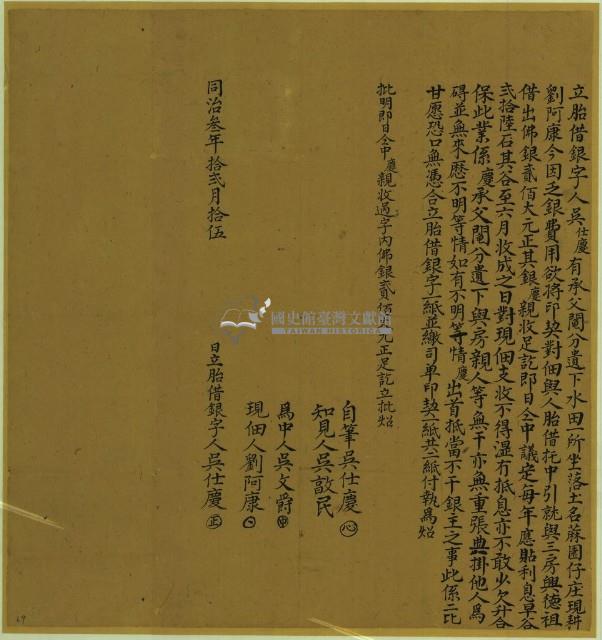 立胎借銀字人吳仕慶有承父鬮分遺下水田一所坐落土名蔴園仔庄現耕
劉阿康今因乏銀費用欲將印契對佃與人胎借托中引就與三房興德祖
借出佛銀貳佰大元正其銀慶親收足訖即日仝中議定每年應貼利息早谷
弍拾陸石其谷至六月收成之日對現佃支收不得濕冇抵息亦不敢少欠升合
保此業係慶承父鬮分遺下與房親人等無干亦無重張典掛他人為
碍並無來歷不明等情如有不明等情慶出首抵當不干銀主之事此係二比
甘愿恐口無憑合立胎借銀字一紙並繳司單印契一紙共二紙付執為炤
批明即日仝中慶親收過字內佛銀貳佰元正足訖立批炤
自筆吳仕慶
知見人吳敨民
為中人吳文爵
現佃人劉阿康
同治叁年拾弍月拾伍日立胎借銀字人吳仕慶
國史館臺灣文獻館
TAIWAN HISTORICA